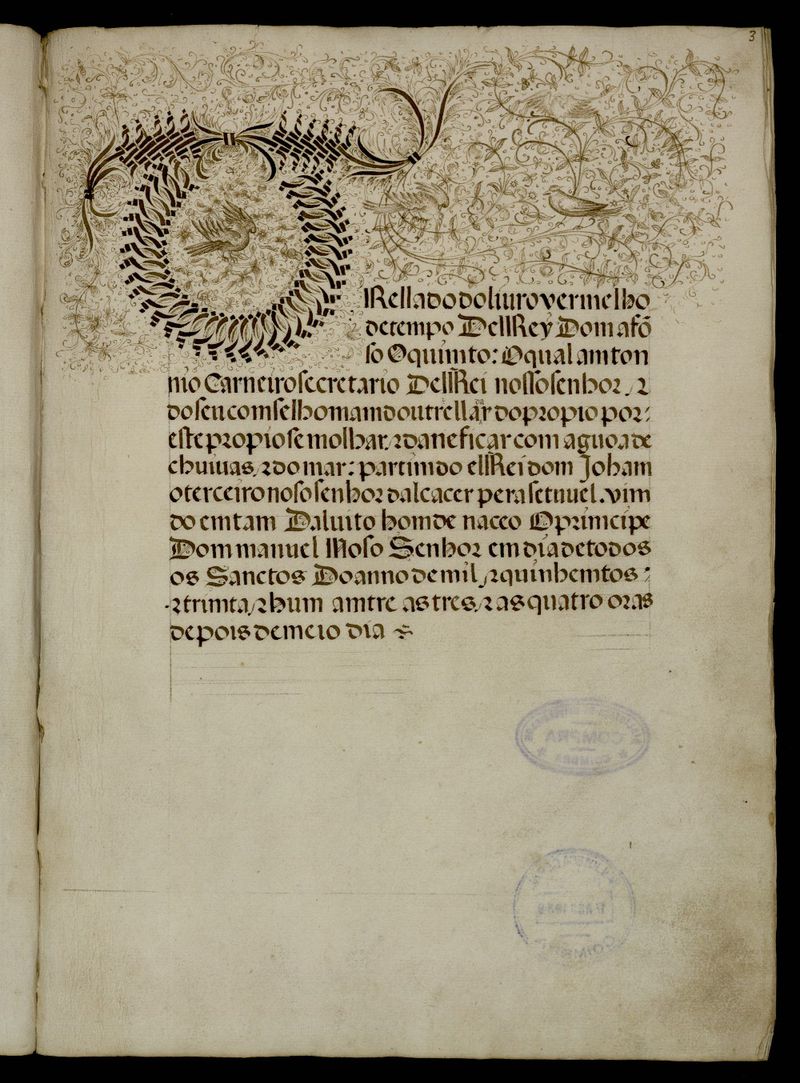 3
TRellado do liuro vermelho
de tempo DellRey Dom afõ
so Oquimto: Oqual amton
nio Carneiro secretario DellRei nosso senhor, ⁊
do seu comselho mamdou trelladar do propio por:
este propio se molhar, ⁊ daneficar com aguoa de
chuiuas, ⁊ do mar: partimdo ellRei dom Joham
o terceiro noso senhor dalcacer pera setuuel. vim
do emtam Daluito homde naceo O primcipe
Dom manuel Noso Senhor em dia de todos
os Sanctos Do anno de mil, ⁊ quinhemtos:
⁊ trimta, ⁊ hum amtre as tres, ⁊ as quatro oras
depois de meio dia
COMPRA